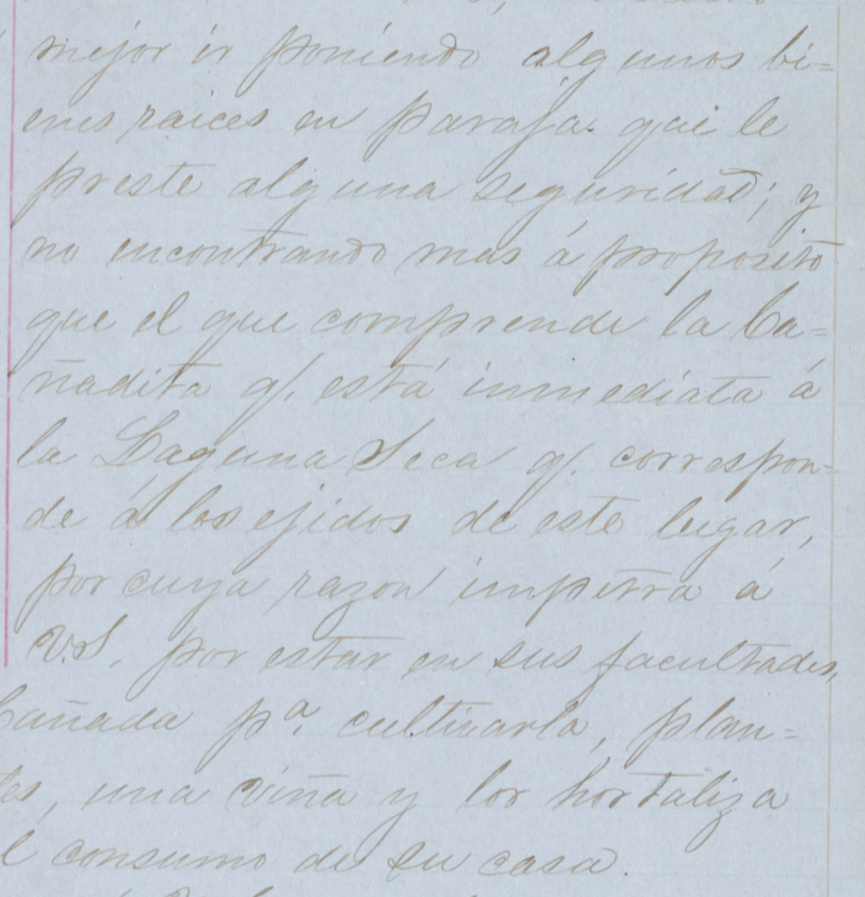 mejor ir poniendo algunos bi=
enes raices en paraja que le
preste alguna seguridad; y
no encontrando mas á proposito
que el que comprende la Ca=
ñadita q/. está inmediata á
la Laguna Seca q/. correspon=
de á los ejidos de este lugar,
por cuya razon impetra á
V.S. por estar en sus facultades,
Cañada pª. cultivarla, plan=
una viña y lor hortaliza
consumo de su casa.